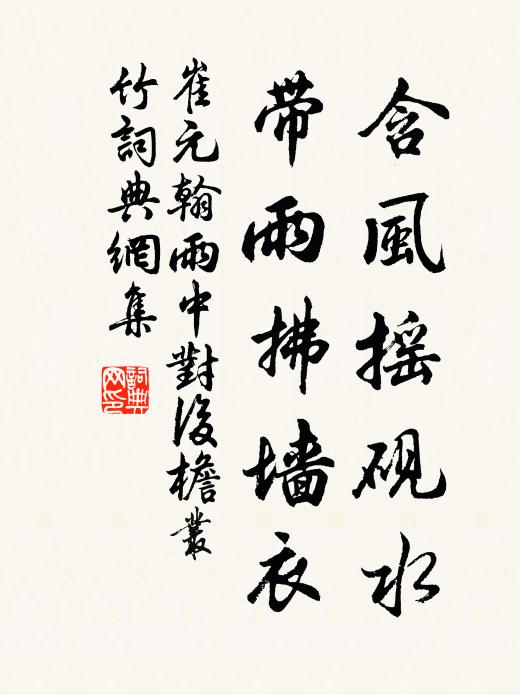 含風摇砚水
带雨拂墙衣
崔元翰雨中對後檐叢
竹詞典網集
詞典
网印